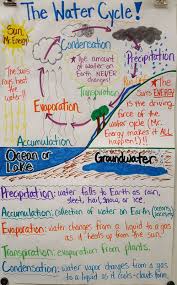 The Water Cycle!
Sun
Mr. Energy!
Condensation
Precipitation
★ The
amount of
water on
Earth NEVER
changes!
The Sun's
rays heat
the water!
Transpiration
Evaporation
★ The
Sun's ENERGY
is the driving
force of the
water cycle (Mr.
Energy makes it ALL
happen!)
Accumulation
Ocean or
Lake
Groundwater
Precipitation: water falls to Earth as rain,
sleet, hail, snow, or ice.
Accumulation: collection of water on Earth
Evaporation: water changes from a liquid to a gas
as it heats up from the sun.
Transpiration: evaporation from plants.
Condensation: water vapor changes from a gas
to a liquid as it cools-clouds form.